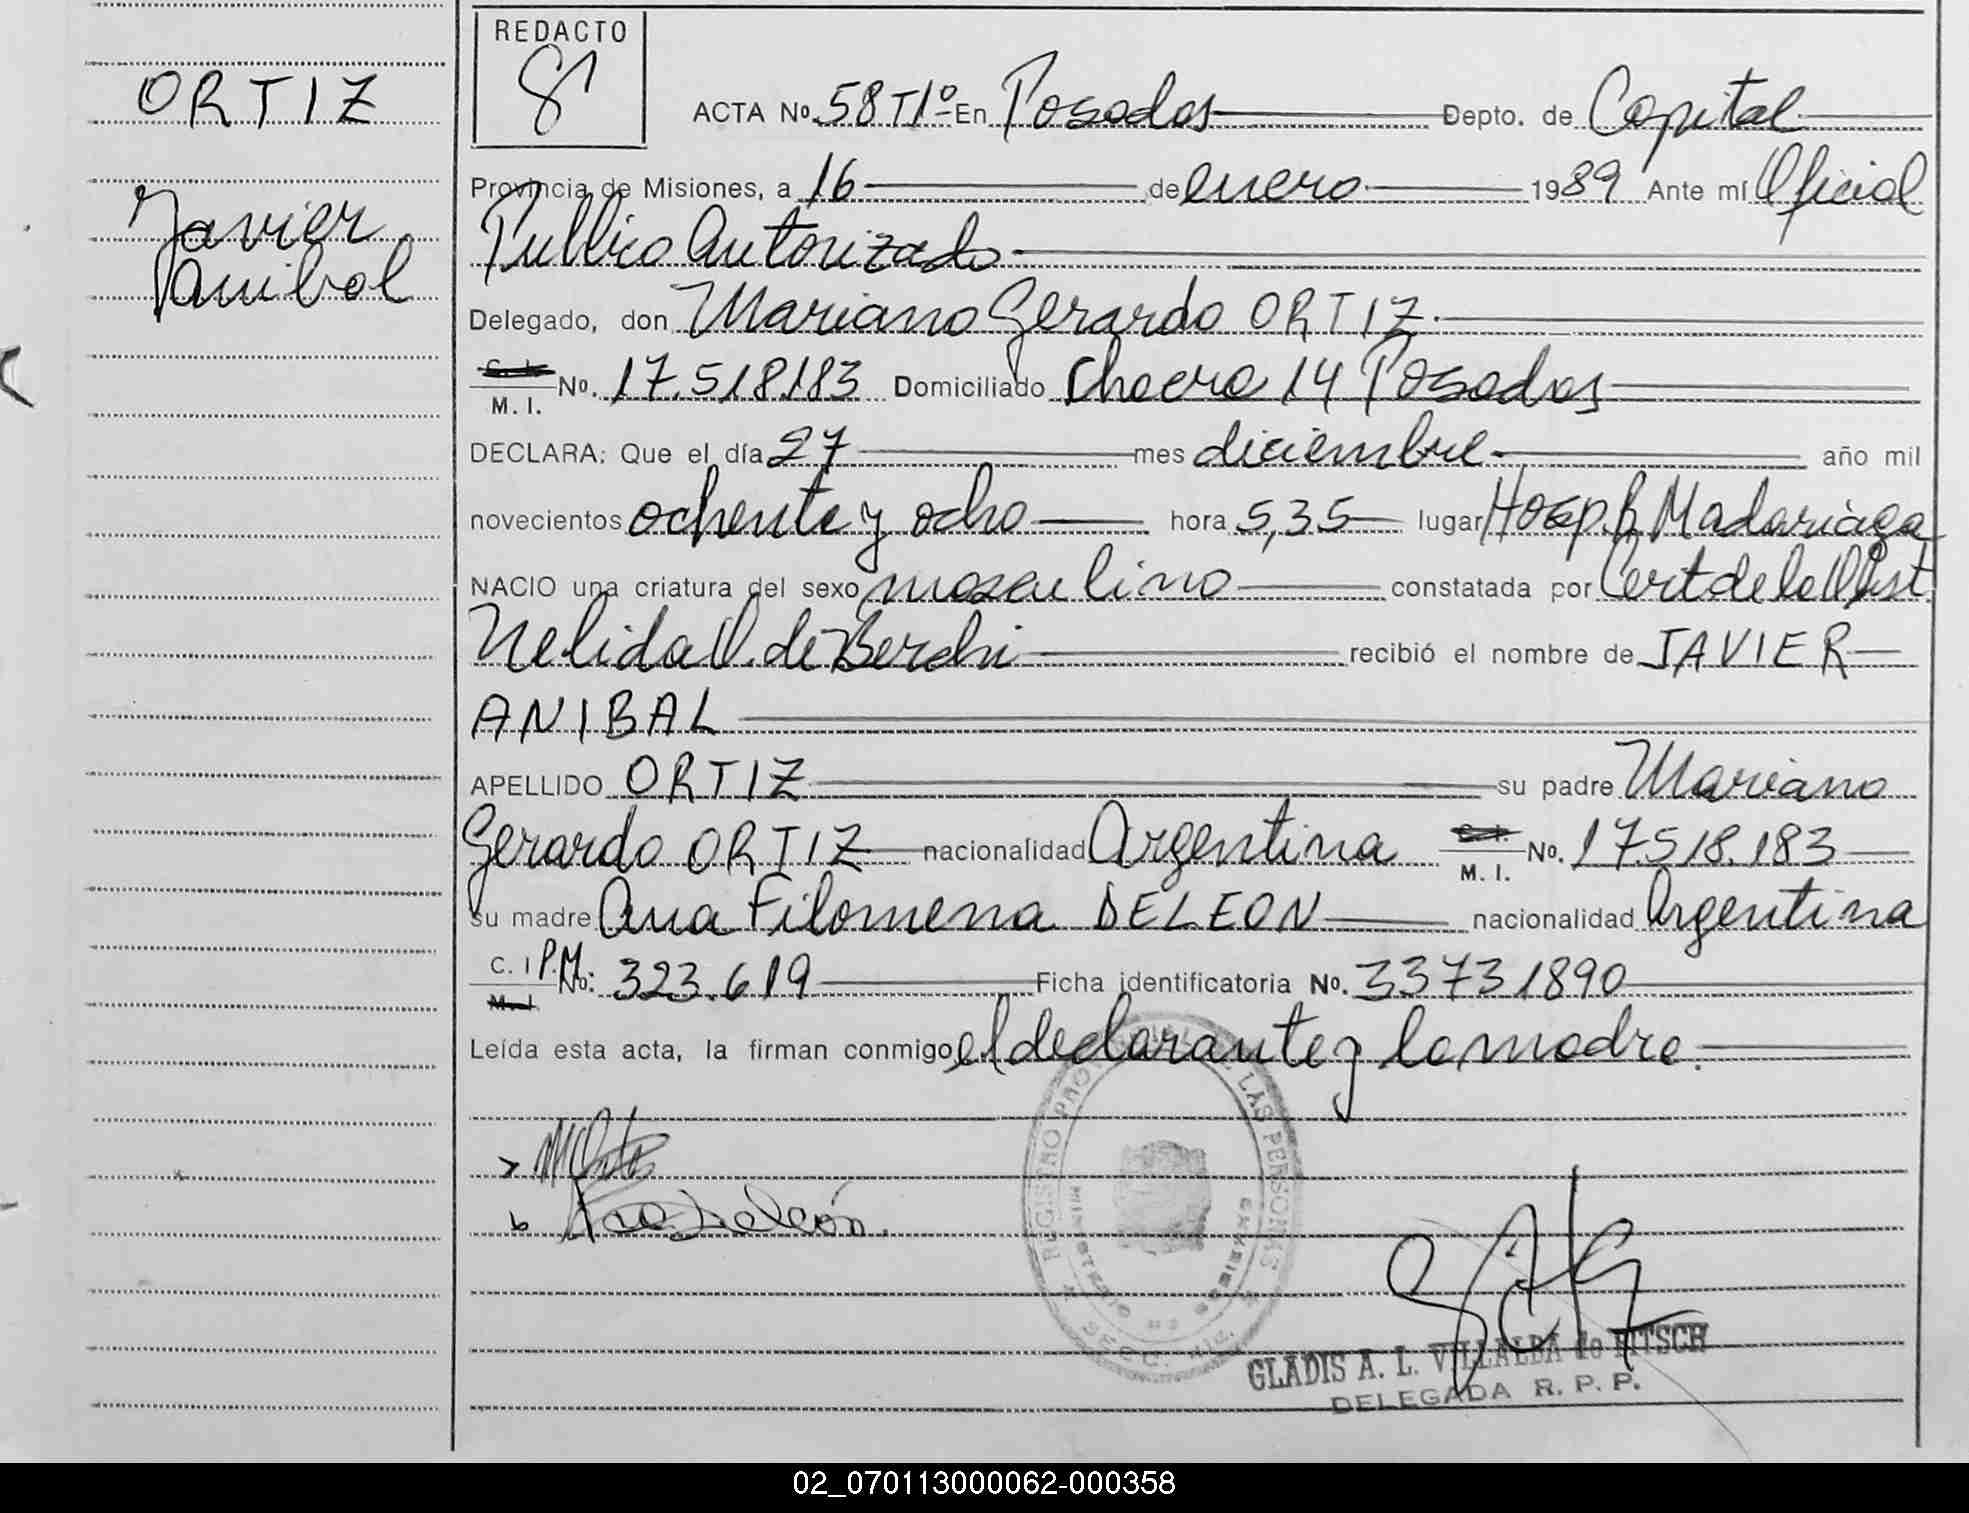 REDACTO
ORTIZ
Javier
Anibal
ACTA Nº 58 T1º En Posadas Depto. de Capital
Provincia de Misiones, a 16 de enero 1989 Ante mí Oficial
Publico Autorizado
Delegado, don Mariano Gerardo ORTIZ.
M. I. No. 17.518.183 Domiciliado Chacra 14 Posadas
DECLARA: Que el día 27 mes diciembre año mil
novecientos ochenta y ocho hora 5,35 lugar Hosp. R. Madariaga
NACIO una criatura del sexo masculino constatada por Cert de la Obst.
Nelida de Berchi recibió el nombre de JAVIER
ANIBAL
APELLIDO ORTIZ su padre Mariano
Gerardo ORTIZ nacionalidad Argentina M. I. No. 17.518.183
su madre Ana Filomena DELEON nacionalidad Argentina
C. I P.M. No: 323.619 Ficha identificatoria No. 33731890
Leída esta acta, la firman conmigo el declarante y la madre.
REGISTRO PROVINCIAL DE LAS PERSONAS
MINISTERIO DE GOBIERNO
SECC.
Ana Deleón.
GLADIS A. L. VILLALBA de PITSCH
DELEGADA R. P. P.
02_070113000062-000358